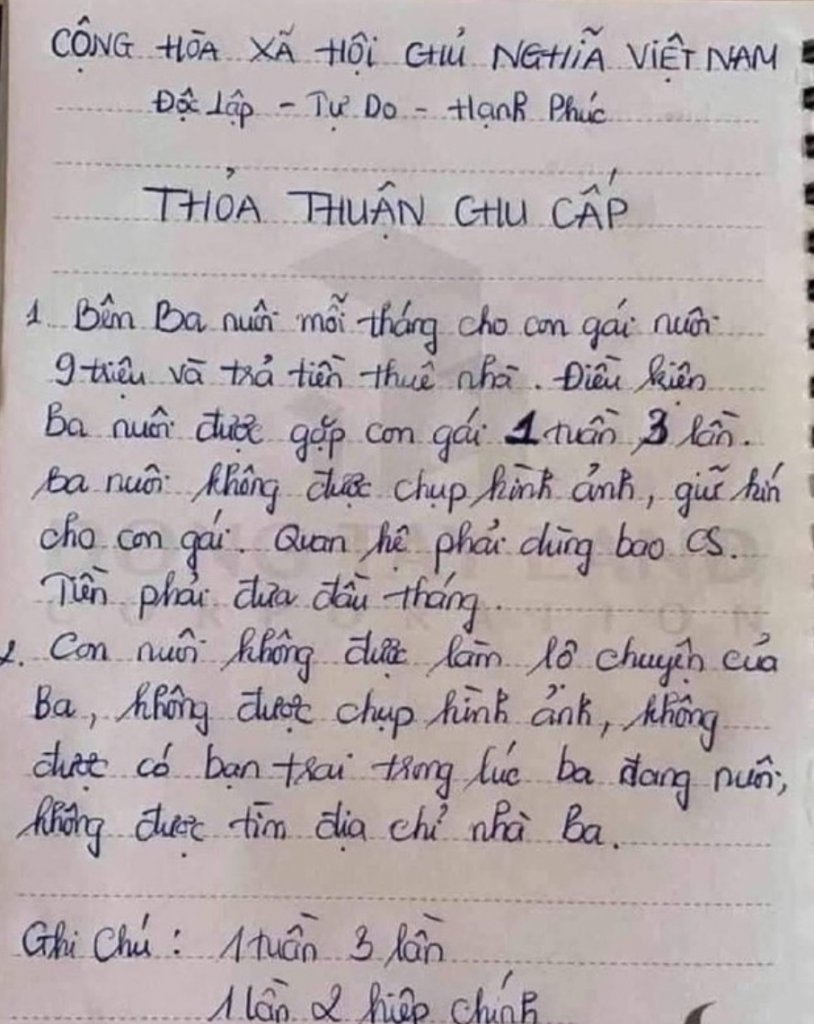 CỘNG HÒA XÃ HỘI CHỦ NGHĨA VIỆT NAM
Độc Lập - Tự Do - Hạnh Phúc
THỎA THUẬN CHU CẤP
1. Bên Ba nuôi mỗi tháng cho con gái nuôi
9 triệu và trả tiền thuê nhà. Điều kiện
Ba nuôi được gặp con gái 1 tuần 3 lần.
Ba nuôi không được chụp hình ảnh, giữ kín
cho con gái. Quan hệ phải dùng bao CS.
Tiền phải đưa đầu tháng.
2. Con nuôi không được làm lộ chuyện của
Ba, không được chụp hình ảnh, không
được có bạn trai trong lúc ba đang nuôi,
không được tìm địa chỉ nhà Ba.
Ghi Chú : 1 tuần 3 lần
1 lần 2 hiệp chính